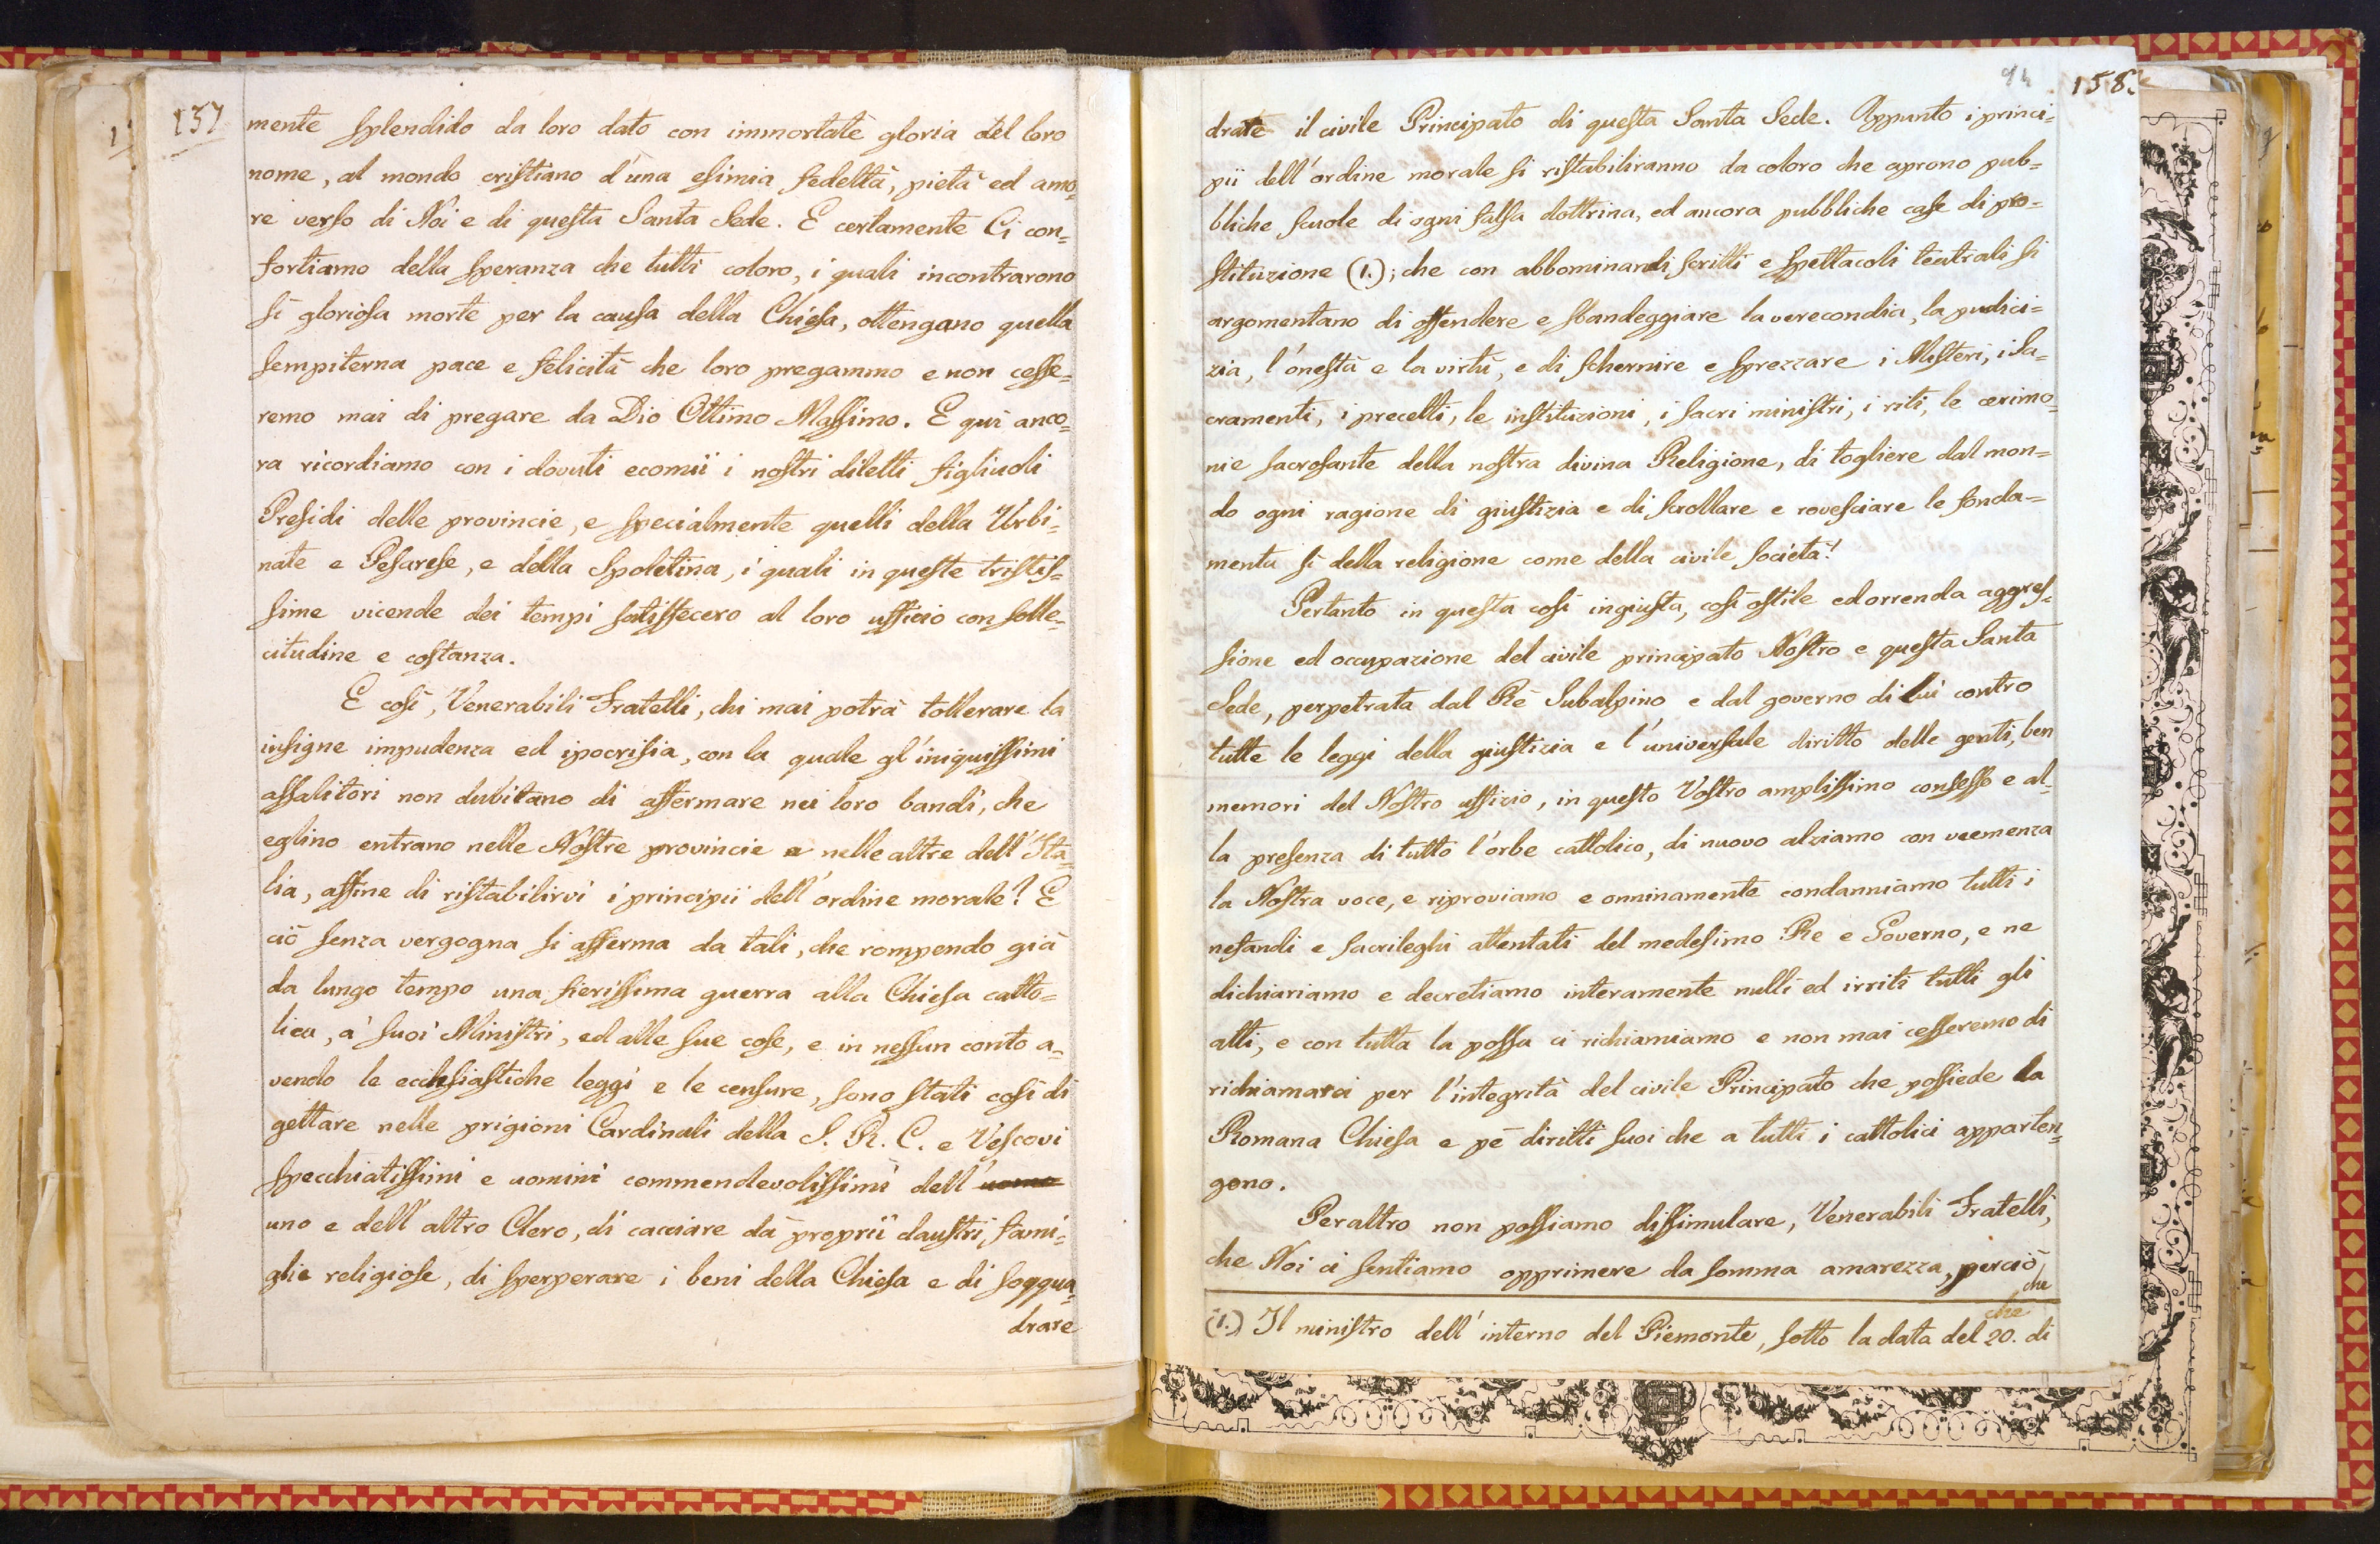 157
mente splendido da loro dato con immortale gloria del loro
nome, al mondo cristiano d'una esimia fedeltà, pietà ed amo=
re verso di Noi e di questa Santa Sede. E certamente Ci con=
fortiamo della speranza che tutti coloro, i quali incontrarono
sì gloriosa morte per la causa della Chiesa, ottengano quella
sempiterna pace e felicità che loro pregammo e non cesse=
remo mai di pregare da Dio Ottimo Massimo. E quì anco=
ra ricordiamo con i dovuti ecomii i nostri diletti figliuoli
Presidi delle provincie, e specialmente quelli della Urbi=
nate e Pesarese, e della Spoletina, i quali in queste tristis=
sime vicende dei tempi satisfecero al loro ufficio con solle=
citudine e costanza.
E così, Venerabili Fratelli, chi mai potrà tollerare la
insigne impudenza ed ipocrisia, con la quale gl'iniquissimi
assalitori non dubitano di affermare nei loro bandi, che
eglino entrano nelle Nostre provincie e nelle altre dell'Ita=
lia, affine di ristabilirvi i principii dell'ordine morale? E
ciò senza vergogna si afferma da tali, che rompendo già
da lungo tempo una fierissima guerra alla Chiesa catto=
lica, a' suoi Ministri, ed alle sue cose, e in nessun conto a=
vendo le ecclesiastiche leggi e le censure, sono stati così di
gettare nelle prigioni Cardinali della S. R. C. e Vescovi
specchiatissimi e uomini commendevolissimi dell' uomo
uno e dell'altro Clero, di cacciare da proprii claustri, fami=
glie religiose, di sperperare i beni della Chiesa e di soqqua=
drare
94 158.
drate il civile Principato di questa Santa Sede. Appunto i princi=
pii dell'ordine morale si ristabiliranno da coloro che aprono pub=
bliche scuole di ogni falsa dottrina, ed ancora pubbliche case di pro=
stituzione (1.); che con abbominandi scritti e spettacoli teatrali si
argomentano di offendere e sbandeggiare la verecondia, la pudici=
zia, l'onestà e la virtù, e di schernire e sprezzare i Misteri, i Sa=
cramenti, i precetti, le instituzioni, i sacri ministri, i riti, le cerimo=
nie sacrosante della nostra divina Religione, di togliere dal mon=
do ogni ragione di giustizia e di scrollare e rovesciare le fonda=
menta sì della religione come della civile società!
Pertanto in questa così ingiusta, così ostile ed orrenda aggres=
sione ed occupazione del civile principato Nostro e questa Santa
Sede, perpetrata dal Rè Subalpino e dal governo di lui contro
tutte le leggi della giustizia e l'universale diritto delle genti, ben
memori del Nostro uffizio, in questo Vostro amplissimo consesso e al=
la presenza di tutto l'orbe cattolico, di nuovo alziamo con veemenza
la Nostra voce, e riproviamo e onninamente condanniamo tutti i
nefandi e sacrileghi attentati del medesimo Re e Governo, e ne
dichiariamo e decretiamo interamente nulli ed irriti tutti gli
atti, e con tutta la possa ci richiamiamo e non mai cesseremo di
richiamarci per l'integrità del civile Principato che possiede la
Romana Chiesa e pè diritti suoi che a tutti i cattolici apparten=
gono.
Peraltro non possiamo dissimulare, Venerabili Fratelli,
che Noi ci sentiamo opprimere da somma amarezza, perciò
che
che
(1.) Il ministro dell'interno del Piemonte, sotto la data del 20. di